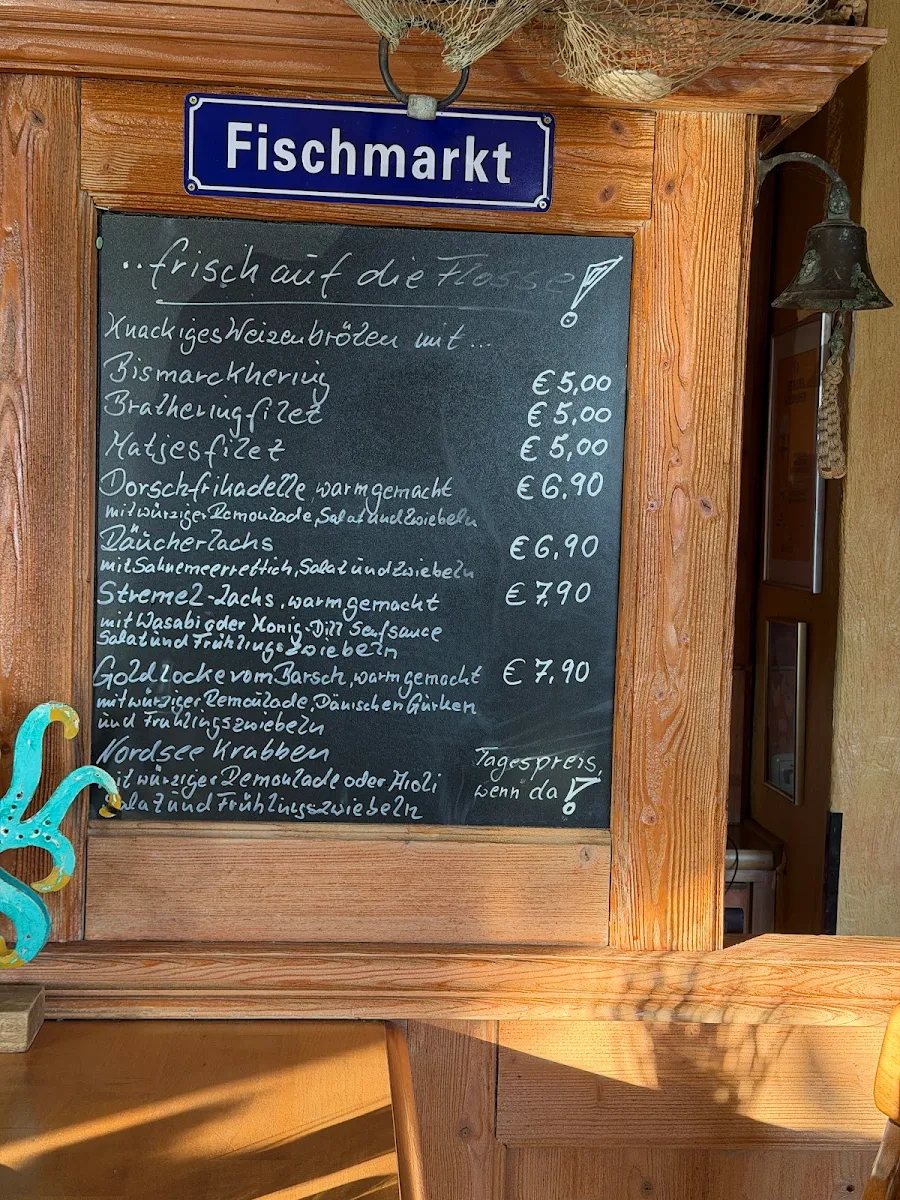 Fischmarkt
..frisch auf die Flosse!
Knackiges Weizenbröten mit...
Bismarckhering € 5,00
Bratheringfilet € 5,00
Matjesfilet € 5,00
Dorschfrikadelle, warmgemacht € 6.90
mit würziger Remoulade, Salat und Zwiebeln
Räucherlachs € 6,90
mit Sahnemeerrettich, Salat und Zwiebeln
Stremel-Lachs, warmgemacht € 7,90
mit Wasabi oder Honig-Dill Senfsauce
Salat und Frühlingszwiebeln
Goldlocke vom Barsch, warmgemacht € 7,90
mit würziger Remoulade, Dänischen Gurken
und Frühlingszwiebeln
Nordsee Krabben Tagespreis,
mit würziger Remoulade oder Aioli wenn da!
Salat und Frühlingszwiebeln